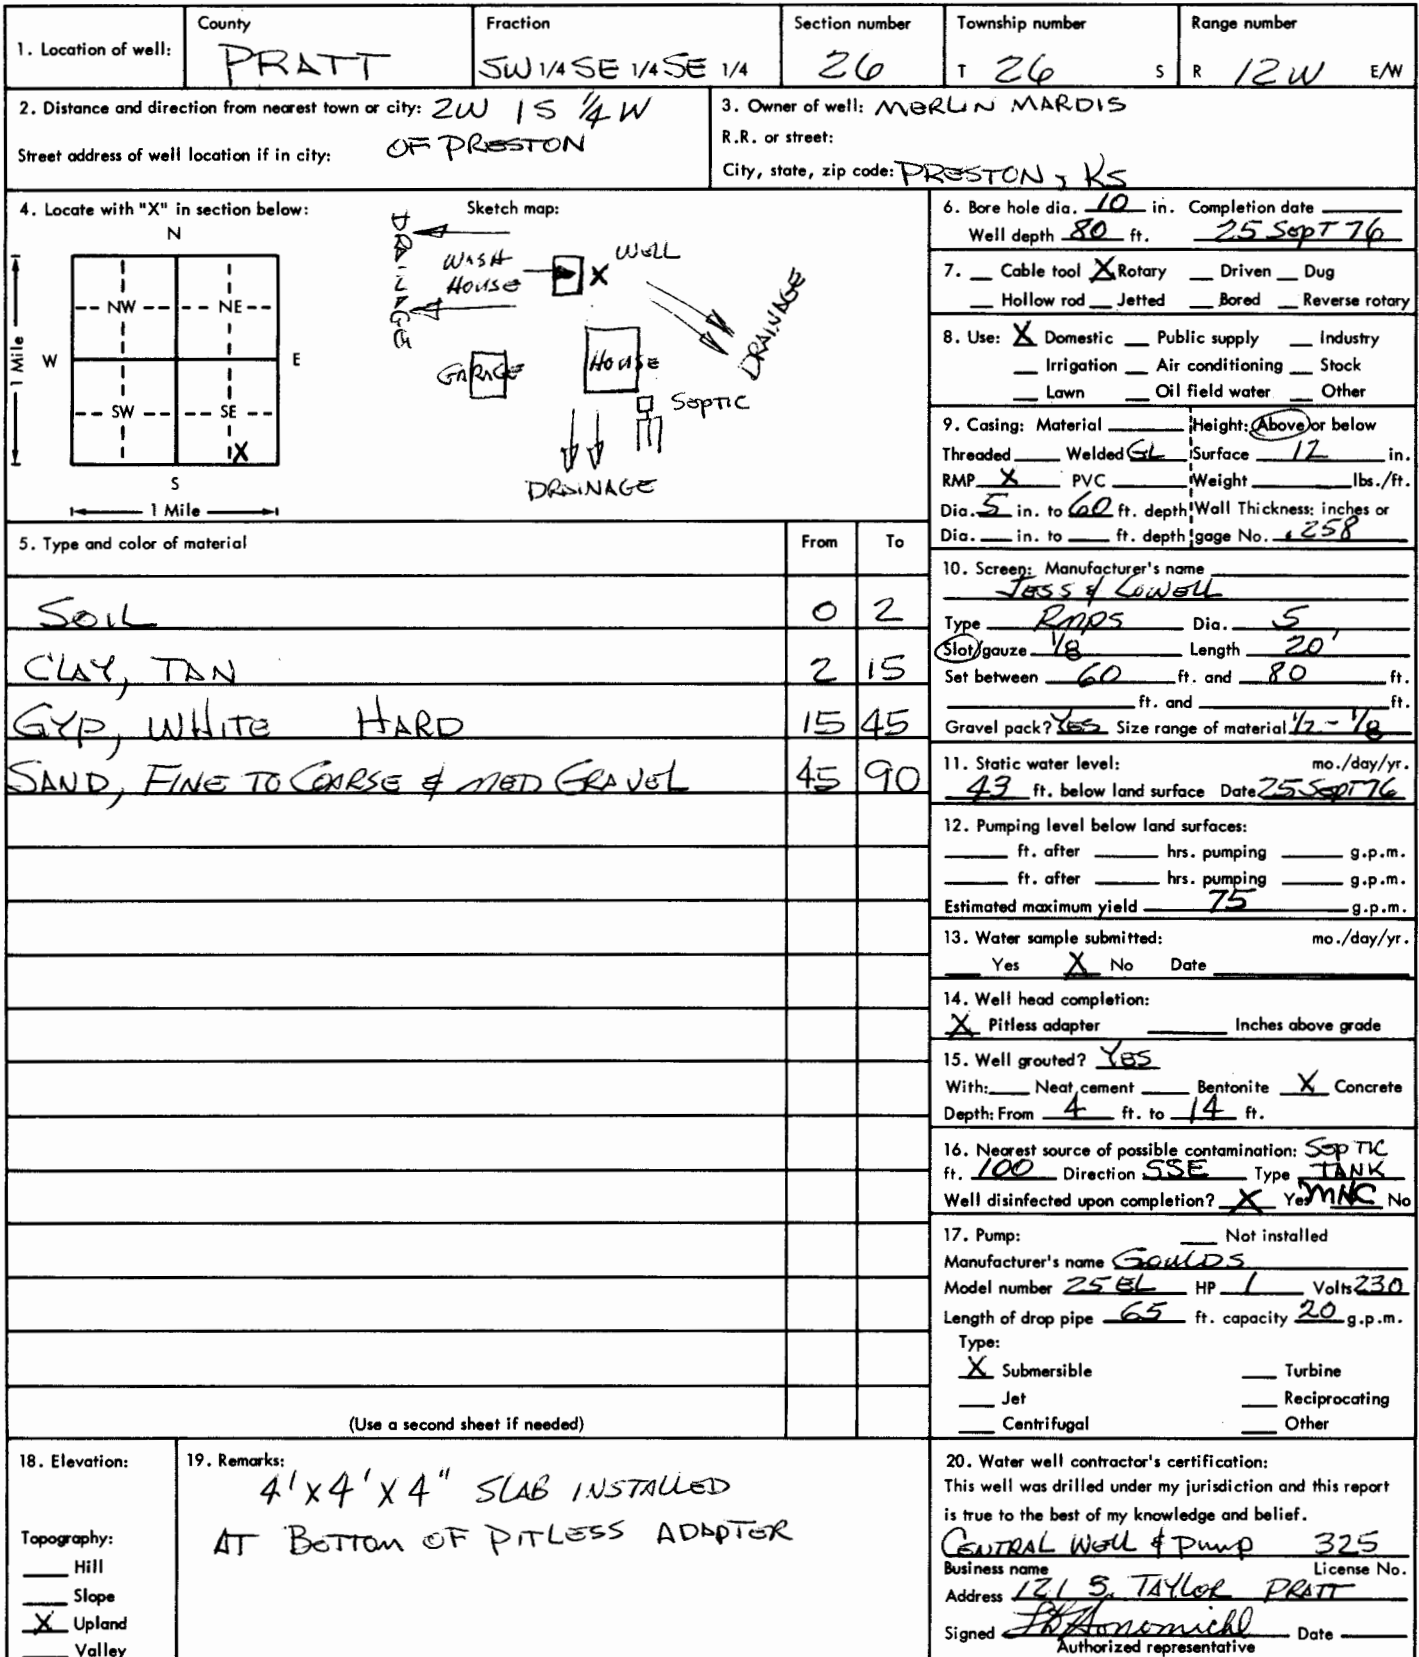 1. Location of well: County PRATT Fraction SW 1/4 SE 1/4 SE 1/4 Section number 26 Township number T 26 S Range number R 12W E/W
2. Distance and direction from nearest town or city: 2W 1S 1/4 W
OF PRESTON
Street address of well location if in city:
3. Owner of well: MERLIN MARDIS
R.R. or street:
City, state, zip code: PRESTON, KS
4. Locate with "X" in section below:
N
NW NE
W E
SW SE
X
S
1 Mile
1 Mile
Sketch map:
DRAINAGE
WASH HOUSE
X WELL
DRAINAGE
GARAGE
HOUSE
SEPTIC
DRAINAGE
5. Type and color of material From To
SOIL 0 2
CLAY, TAN 2 15
GYP, WHITE HARD 15 45
SAND, FINE TO COARSE & MED GRAVEL 45 90
(Use a second sheet if needed)
6. Bore hole dia. 10 in. Completion date
Well depth 80 ft. 25 SepT 76
7. Cable tool X Rotary Driven Dug
Hollow rod Jetted Bored Reverse rotary
8. Use: X Domestic Public supply Industry
Irrigation Air conditioning Stock
Lawn Oil field water Other
9. Casing: Material Height: Above or below
Threaded Welded GL Surface 12 in.
RMP X PVC Weight lbs./ft.
Dia. 5 in. to 60 ft. depth Wall Thickness: inches or
Dia. in. to ft. depth gage No. .258
10. Screen: Manufacturer's name
JESS & LOWELL
Type RMPS Dia. 5
Slot/gauze 1/8 Length 20'
Set between 60 ft. and 80 ft.
ft. and ft.
Gravel pack? YES Size range of material 1/2 - 1/8
11. Static water level: mo./day/yr.
43 ft. below land surface Date 25 Sept 76
12. Pumping level below land surfaces:
ft. after hrs. pumping g.p.m.
ft. after hrs. pumping g.p.m.
Estimated maximum yield 75 g.p.m.
13. Water sample submitted: mo./day/yr.
Yes X No Date
14. Well head completion:
X Pitless adapter Inches above grade
15. Well grouted? YES
With: Neat cement Bentonite X Concrete
Depth: From 4 ft. to 14 ft.
16. Nearest source of possible contamination: SEPTIC
ft. 100 Direction SSE Type TANK
Well disinfected upon completion? X Yes MNC No
17. Pump: Not installed
Manufacturer's name GOULDS
Model number 25EL HP 1 Volts 230
Length of drop pipe 65 ft. capacity 20 g.p.m.
Type:
X Submersible Turbine
Jet Reciprocating
Centrifugal Other
18. Elevation:
Topography:
Hill
Slope
X Upland
Valley
19. Remarks:
4'x4'x4" SLAB INSTALLED
AT BOTTOM OF PITLESS ADAPTER
20. Water well contractor's certification:
This well was drilled under my jurisdiction and this report
is true to the best of my knowledge and belief.
CENTRAL WELL & PUMP 325
Business name License No.
Address 121 S. TAYLOR PRATT
Signed Honomichl Date
Authorized representative